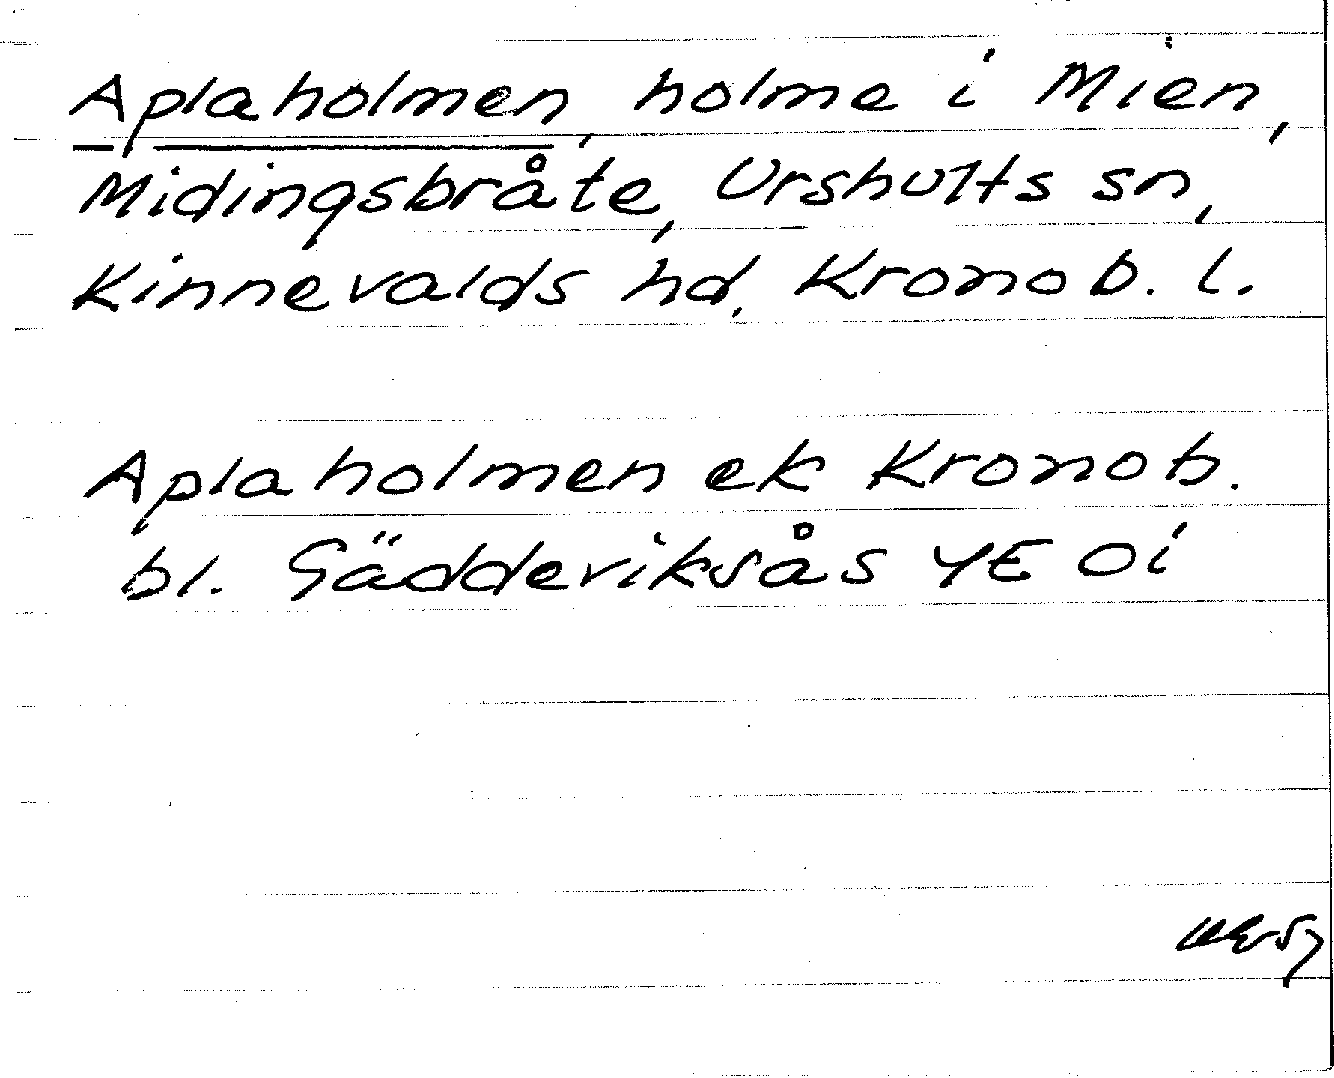 Aplaholmen, holme i Mien,
Midingsbråte, Urshults sn,
Kinnevalds hd, Kronob. l.
Aplaholmen ek Kronob.
bl. Gädderiksås 4E 0i